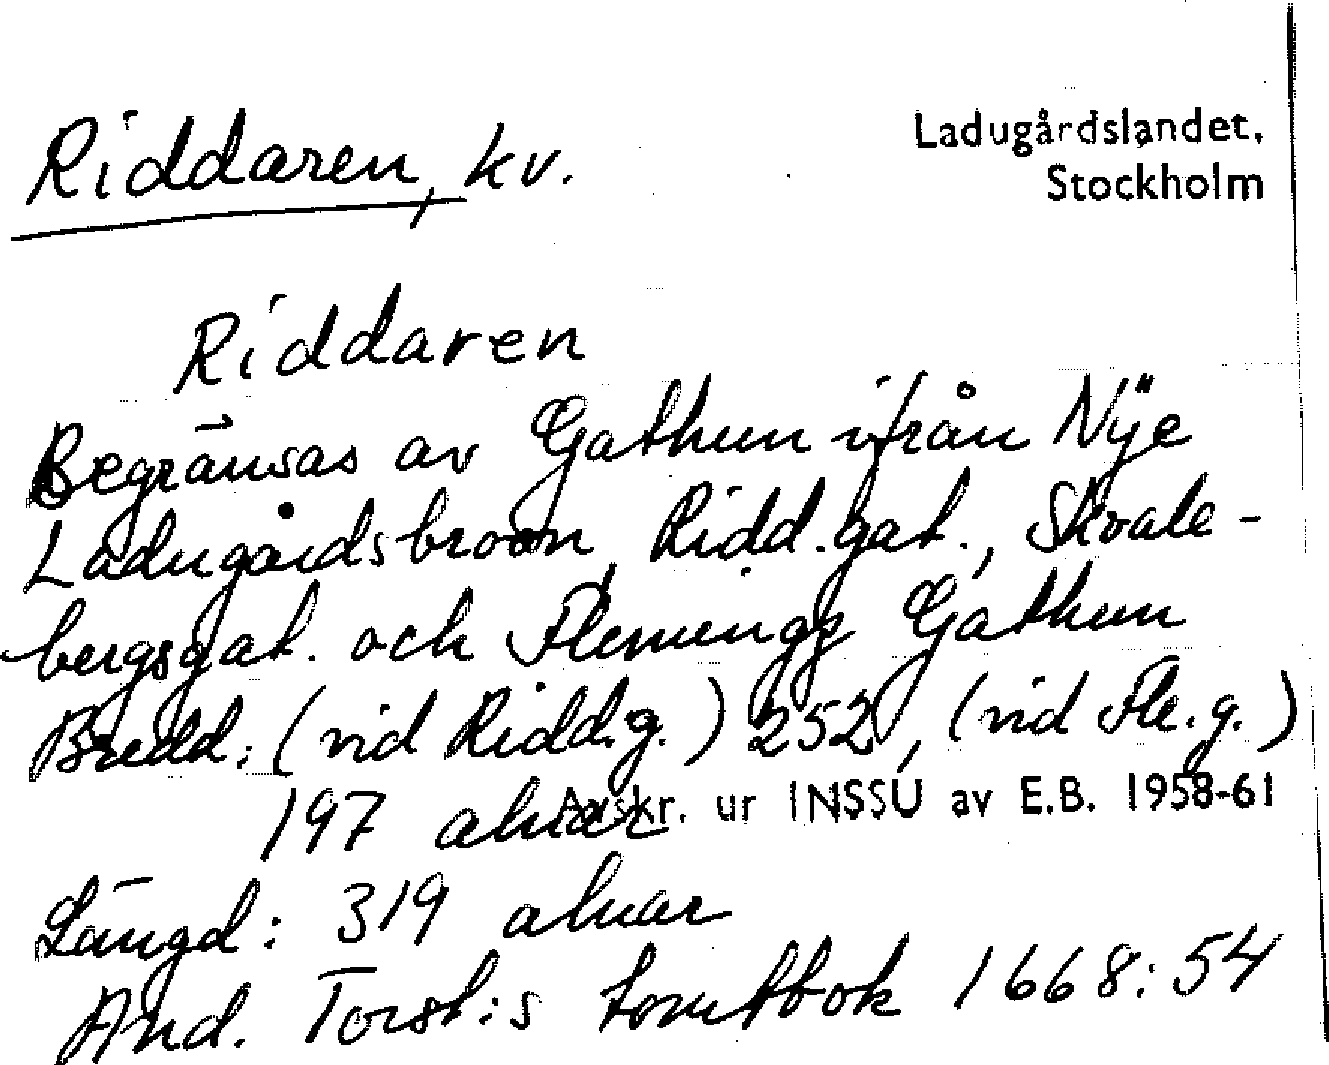 Riddaren, kv.
Ladugårdslandet,
Stockholm
Riddaren
Begränsas av Gathun ifrån Nÿe
Ladugårdsbroon, Ridd.gat., Skvale-
bergsgat. och Flemingz Gathun
Bredd: (vid Ridd.g.) 252, (vid Fle.g.)
197 alnar
Avskr. ur INSSU av E.B. 1958-61
Längd: 319 alnar
And. Torst:s tomtbok 1668:54